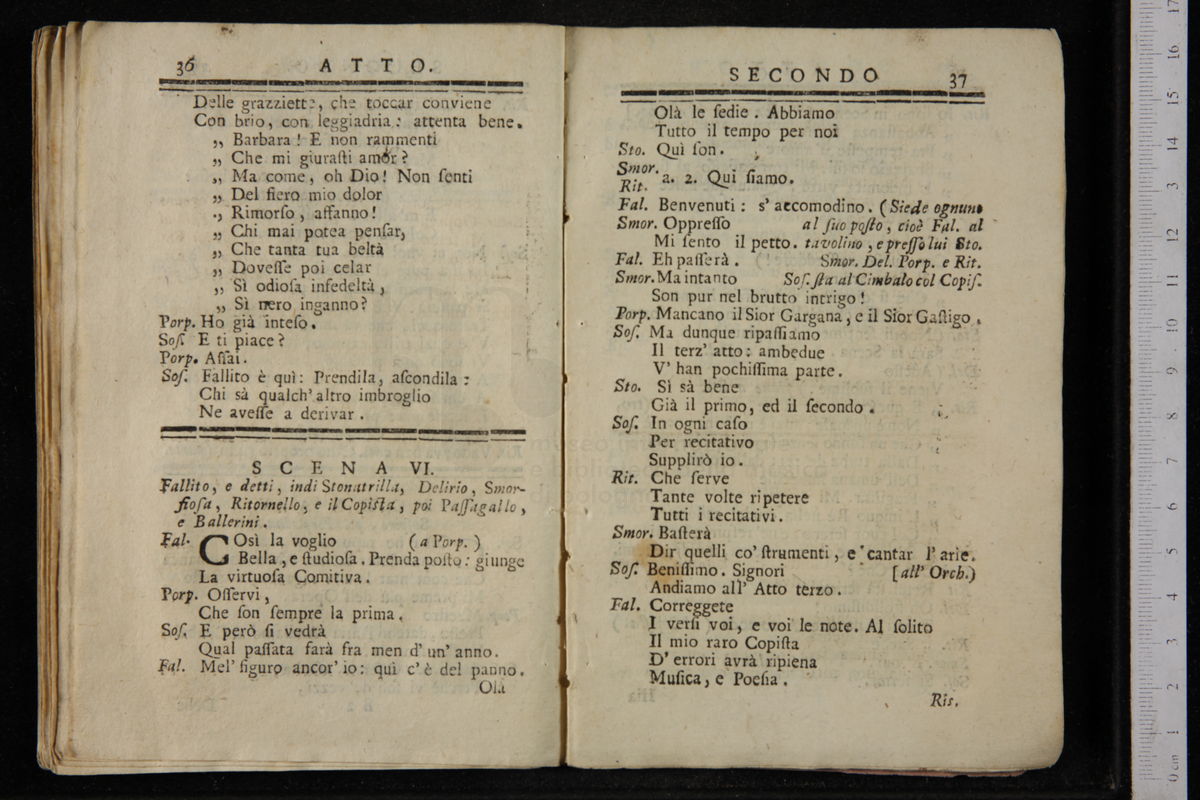 36 ATTO.
Delle grazziette, che toccar conviene
Con brio, con leggiadria: attenta bene.
„ Barbara! E non rammenti
„ Che mi giuraſti amor?
„ Ma come, oh Dio! Non ſenti
„ Del fiero mio dolor
„ Rimorſo, affanno!
„ Chi mai potea penſar,
„ Che tanta tua beltà
„ Doveſſe poi celar
„ Sì odioſa infedeltà,
„ Sì nero inganno?
Porp. Ho già inteſo.
Soſ. E ti piace?
Porp. Aſſai.
Soſ. Fallito è quì: Prendila, aſcondila:
Chi sà qualch' altro imbroglio
Ne aveſſe a derivar.
SCENA VI.
Fallito, e detti, indi Stonatrilla, Delirio, Smor-
fioſa, Ritornello, e il Copiſta, poi Paſſagallo,
e Ballerini.
Fal. COsì la voglio (a Porp.)
Bella, e ſtudioſa. Prenda poſto: giunge
La virtuoſa Comitiva.
Porp. Oſſervi,
Che ſon ſempre la prima.
Soſ. E però ſi vedrà
Qual paſſata farà fra men d' un' anno.
Fal. Mel' figuro ancor' io: quì c' è del panno.
Olà
SECONDO 37
Olà le ſedie. Abbiamo
Tutto il tempo per noi
Sto. Quì ſon.
Smor.
Rit. a. 2. Qui ſiamo.
Fal. Benvenuti: s' accomodino. (Siede ognuno
Smor. Oppreſſo al ſuo poſto, cioè Fal. al
Mi ſento il petto. tavolino, e preſſo lui Sto.
Fal. Eh paſſerà. Smor. Del. Porp. e Rit.
Smor. Ma intanto Soſ. ſta al Cimbalo col Copiſ.
Son pur nel brutto intrigo!
Porp. Mancano il Sior Gargana, e il Sior Gaſtigo.
Soſ. Ma dunque ripaſſiamo
Il terz' atto: ambedue
V' han pochiſſima parte.
Sto. Sì sà bene
Già il primo, ed il ſecondo.
Soſ. In ogni caſo
Per recitativo
Supplirò io.
Rit. Che ſerve
Tante volte ripetere
Tutti i recitativi.
Smor. Baſterà
Dir quelli co' ſtrumenti, e cantar l' arie.
Soſ. Beniſſimo. Signori [all' Orch.)
Andiamo all' Atto terzo.
Fal. Correggete
I verſi voi, e voi le note. Al ſolito
Il mio raro Copiſta
D' errori avrà ripiena
Muſica, e Poeſia.
Ris.